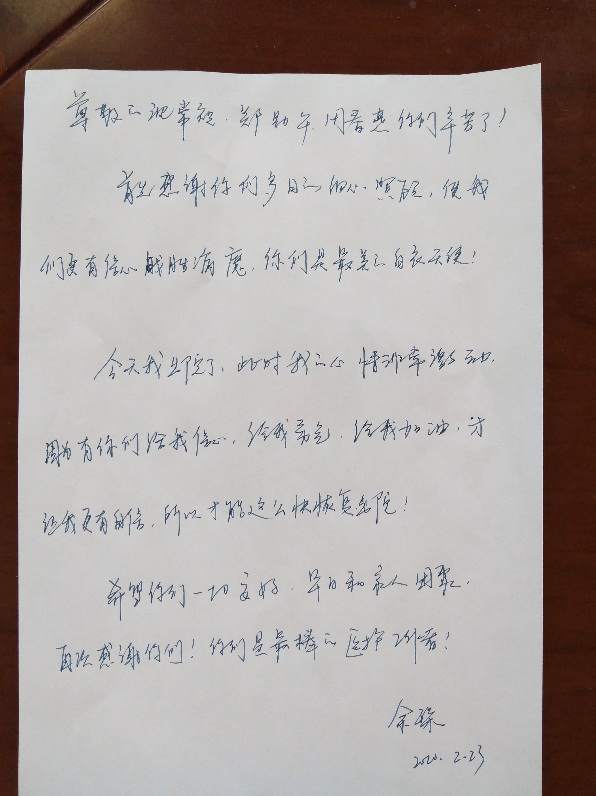 尊敬的池崇福、郑勤午、周春燕你们辛苦了！
首先感谢你们多日的细心照顾，使我
们更有信心战胜病魔，你们是最美的白衣天使！
今天我出院了，此时我的心情非常激动，
因为有你们给我信心，给我勇气，给我加油，才
让我更有自信，所以才能这么快恢复出院！
希望你们一切安好，早日和家人团聚，
再次感谢你们！你们是最棒的医护工作者！
2020.2.23